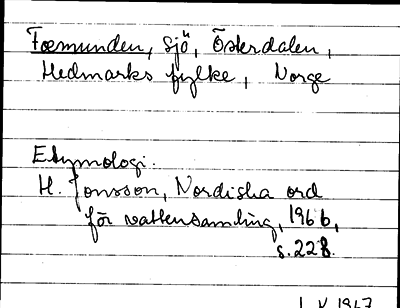 Fæmunden, sjö, Österdalen,
Hedmarks fylke, Norge
Etymologi.
H. Jonsson, Nordiska ord
för vattensamling, 1966,
s. 228.